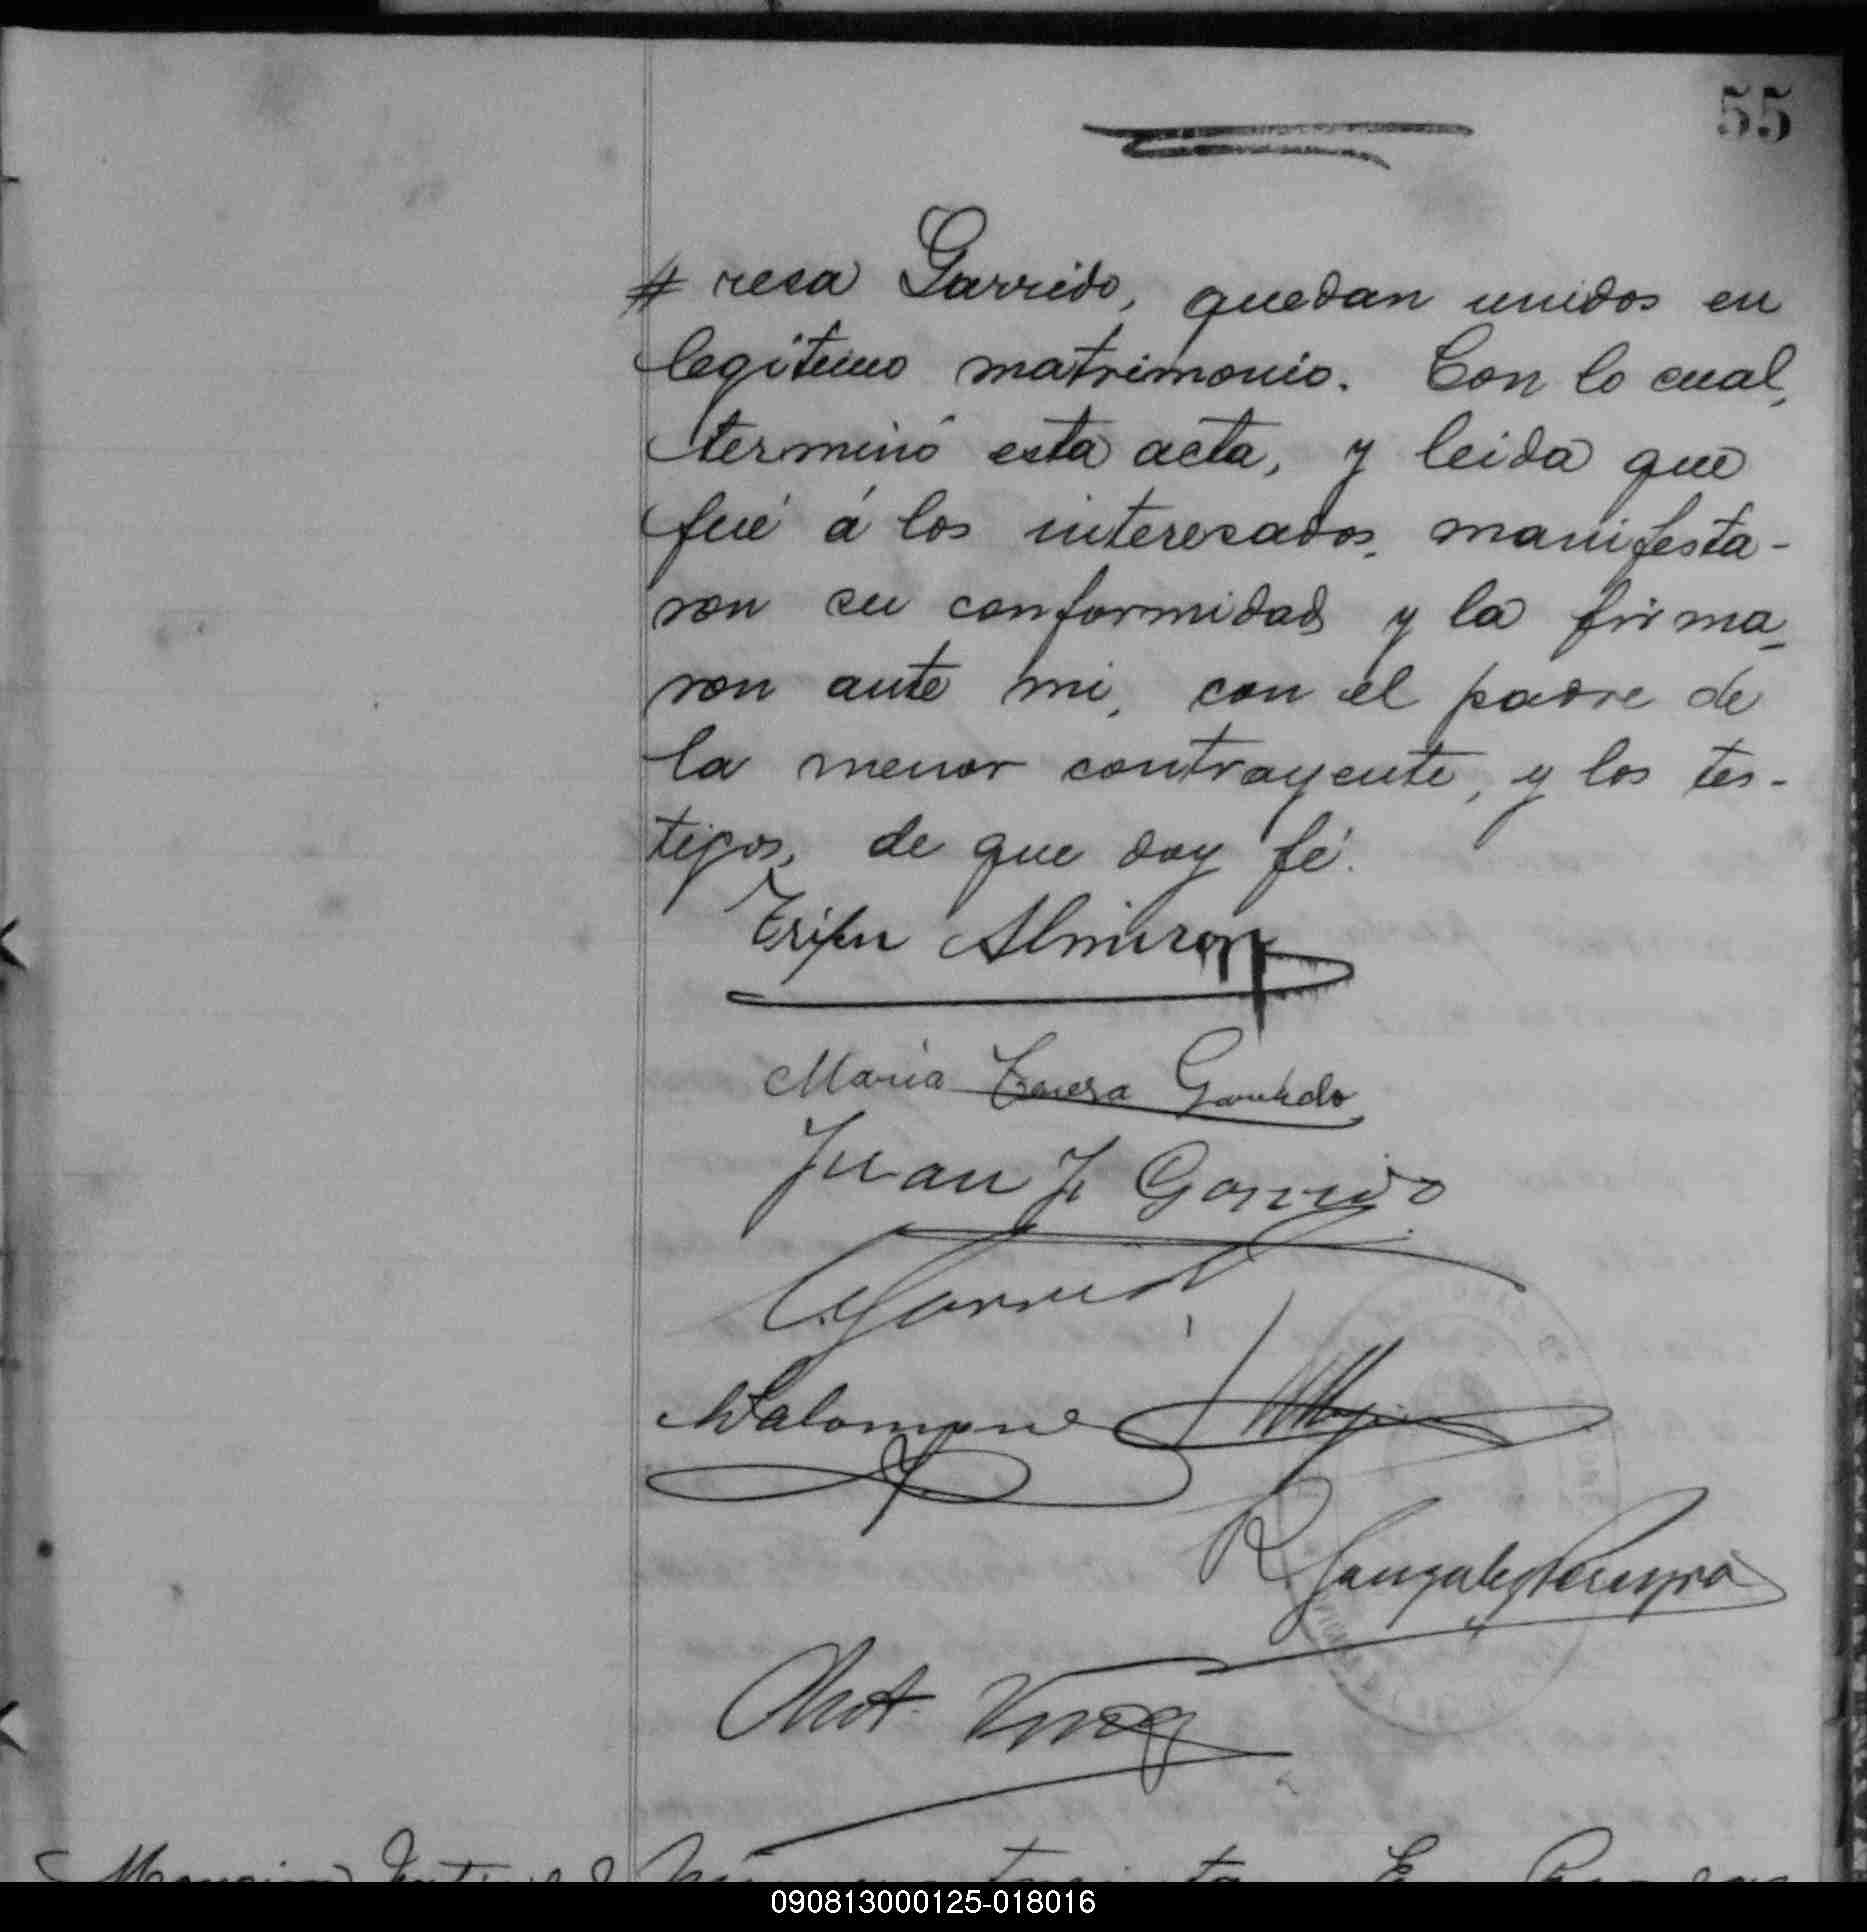 55
# resa Garrido, quedan unidos en
legitimo matrimonio. Con lo cual,
terminó esta acta, y leida que
fué á los interesados, manifesta-
ron su conformidad y la firma-
ron ante mi, con el padre de
la menor contrayente, y los tes-
tigos, de que doy fé.
Almiron
Maria Teresa Garrido
Juan F Garrido
Garrido
R Gonzalez Pereyra
090813000125-018016